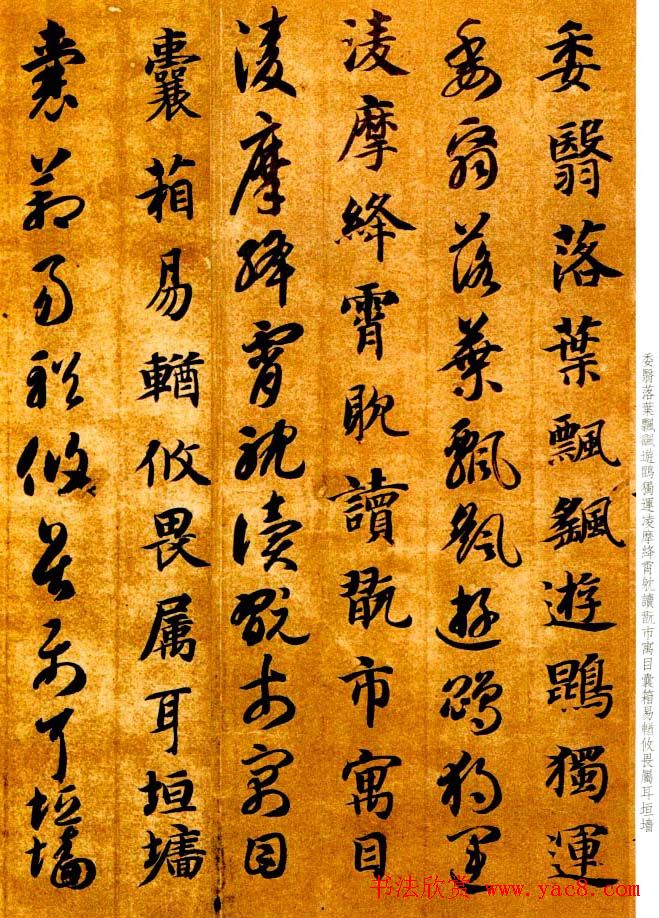 委翳落葉飄颻遊鵾獨運
委翳落葉飄颻遊鵾獨運
淩摩絳霄耽讀翫市寓目
淩摩絳霄耽讀翫市寓目
囊箱易輶攸畏属耳垣墻
囊箱易輶攸畏属耳垣墻
委翳落葉飄颻遊鵾獨運凌摩絳霄躭讀翫市寓目囊箱易輶攸畏屬耳垣墙
书法欣赏 www.yac8.com